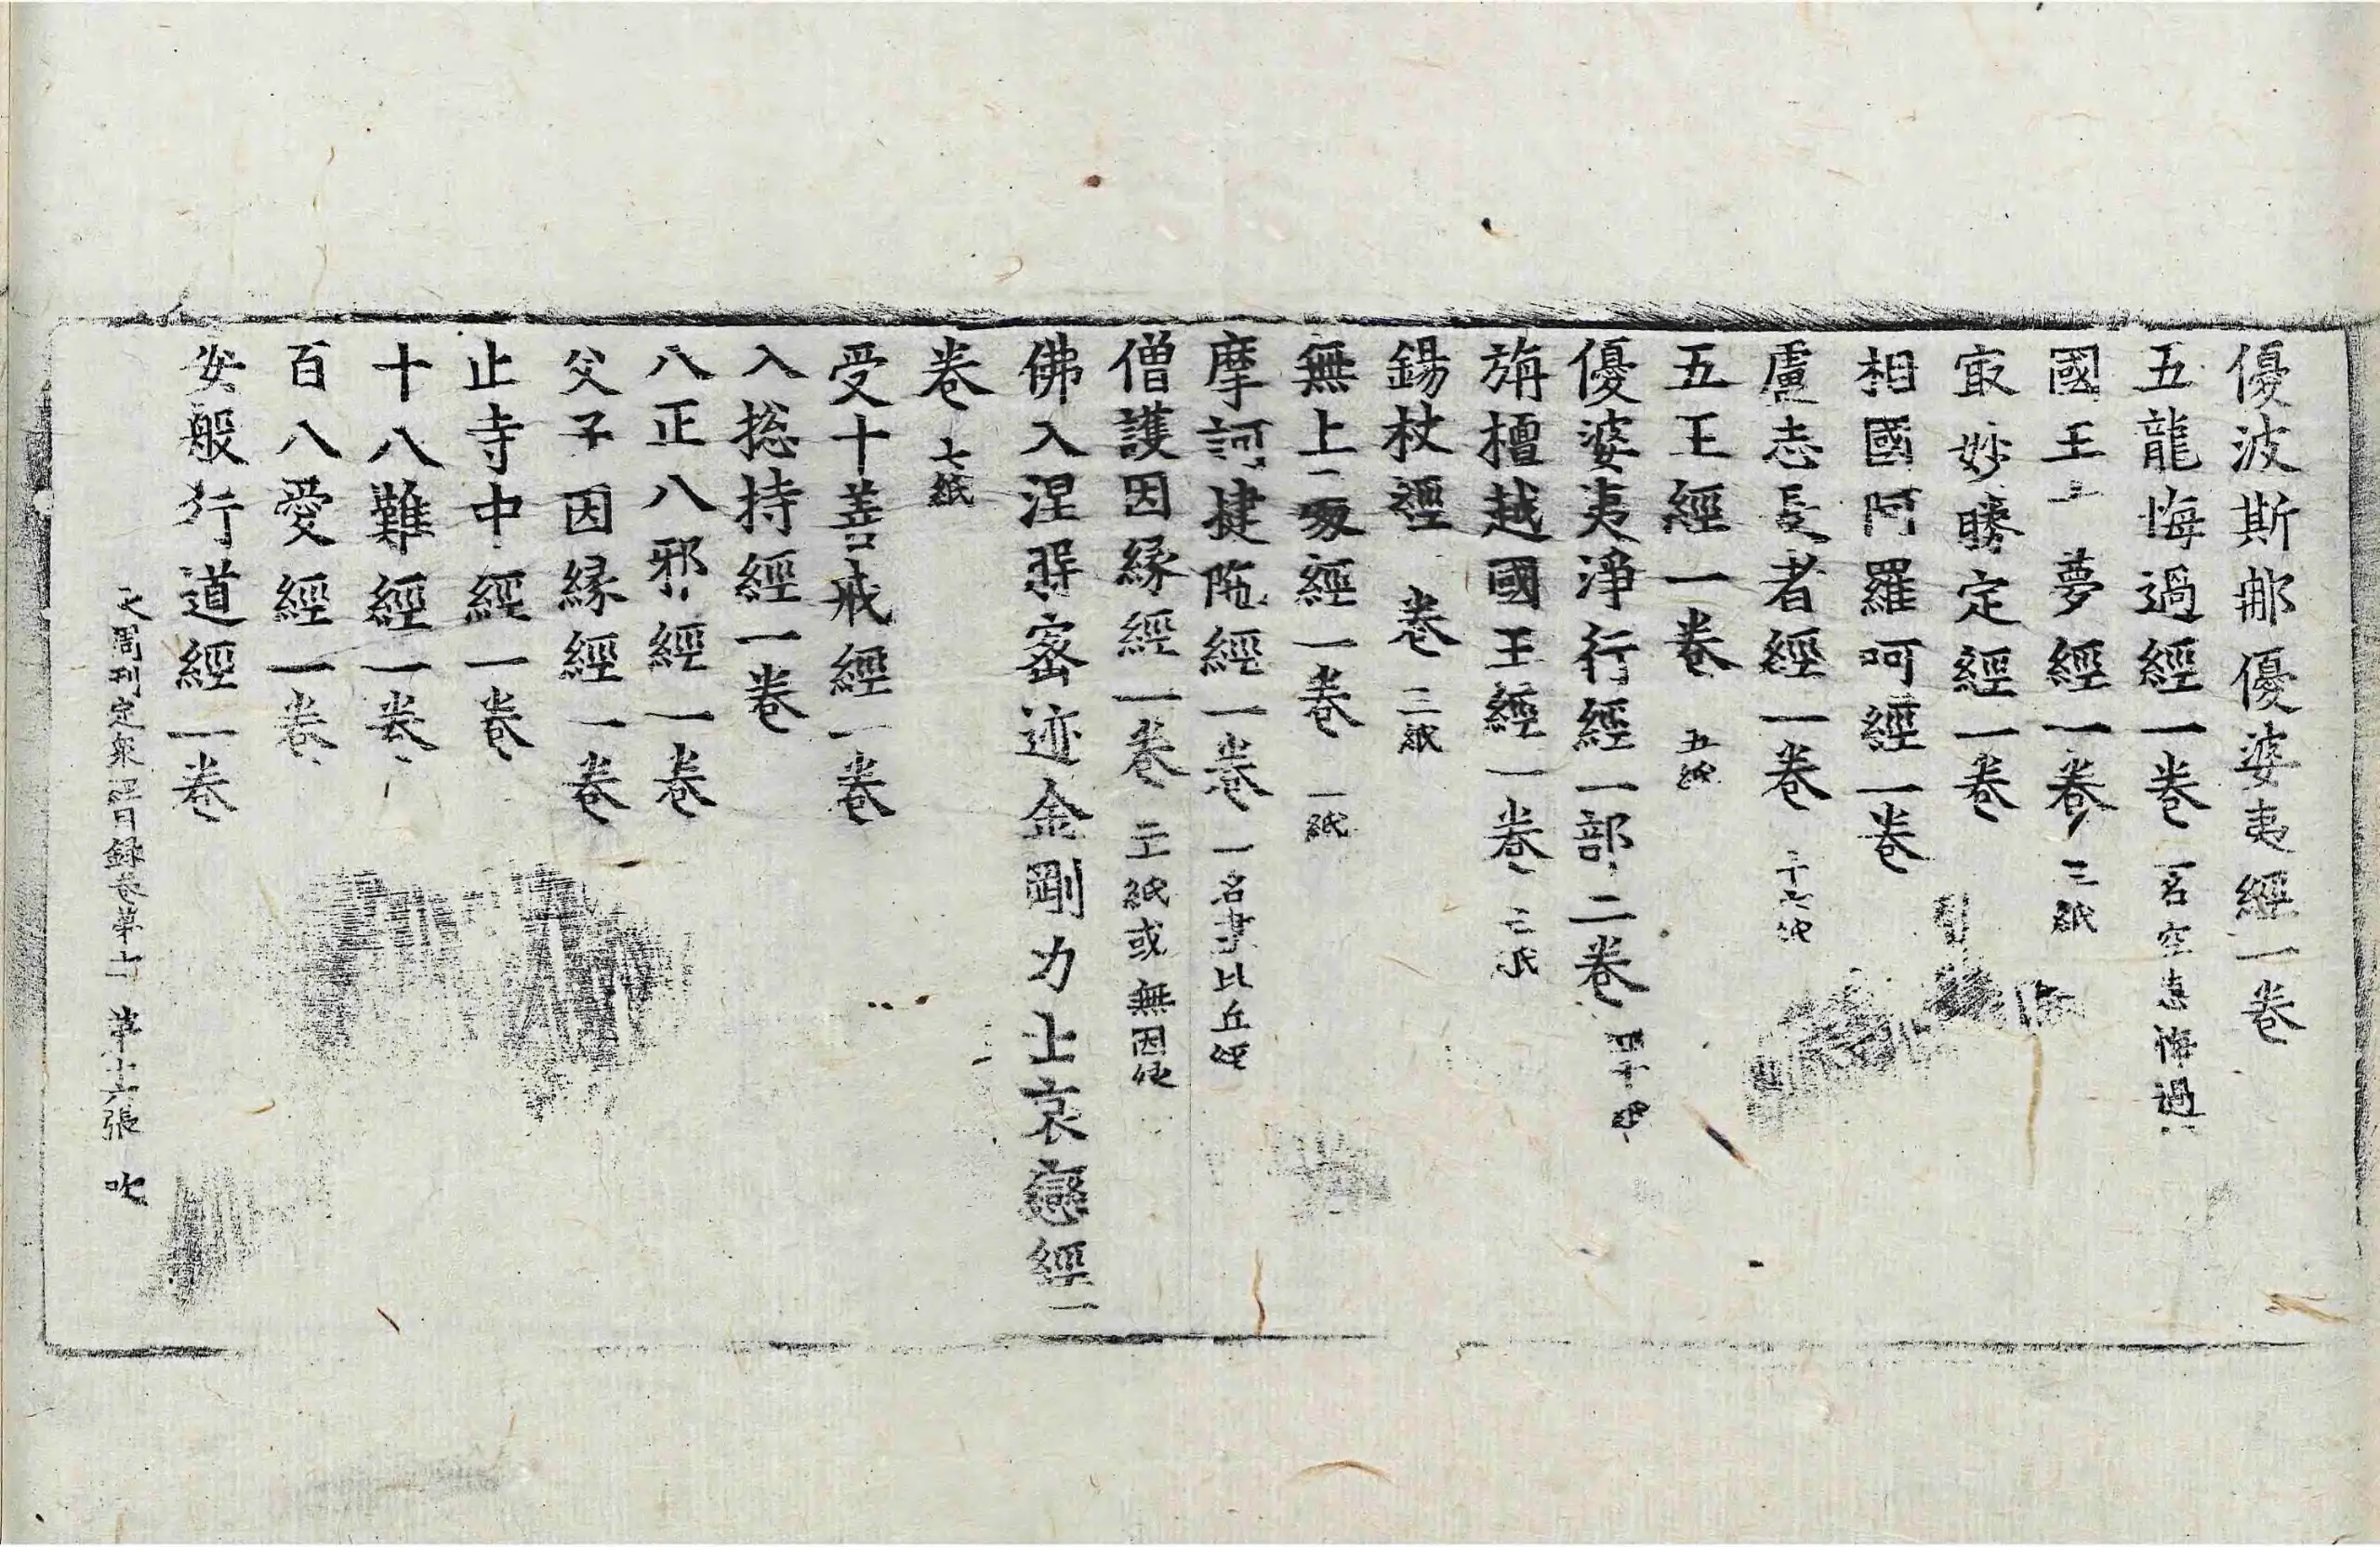 優波斯那優婆夷經一卷
五龍悔過經一卷 一名空 悔過
國王 夢經一卷 三紙
㝡妙勝定經一卷
相國阿羅呵經一卷
盧志長者經一卷
五王經一卷 五紙
優婆夷淨行經一部二卷 四十紙
旃檀越國王經一卷 三紙
錫杖經 卷 三紙
無上 經一卷 一紙
摩訶揵陁經一卷 一名 比丘經
僧護因緣經一卷 紙或無因緣
佛入涅槃密迹金剛力士哀戀經一
卷 七紙
受十善戒經一卷
入捴持經一卷
八正八邪經一卷
父子因緣經一卷
止寺中經一卷
十八難經一卷
百八愛經一卷
安般行道經一卷
大周刊定衆經目錄卷第十 第十六張 吹